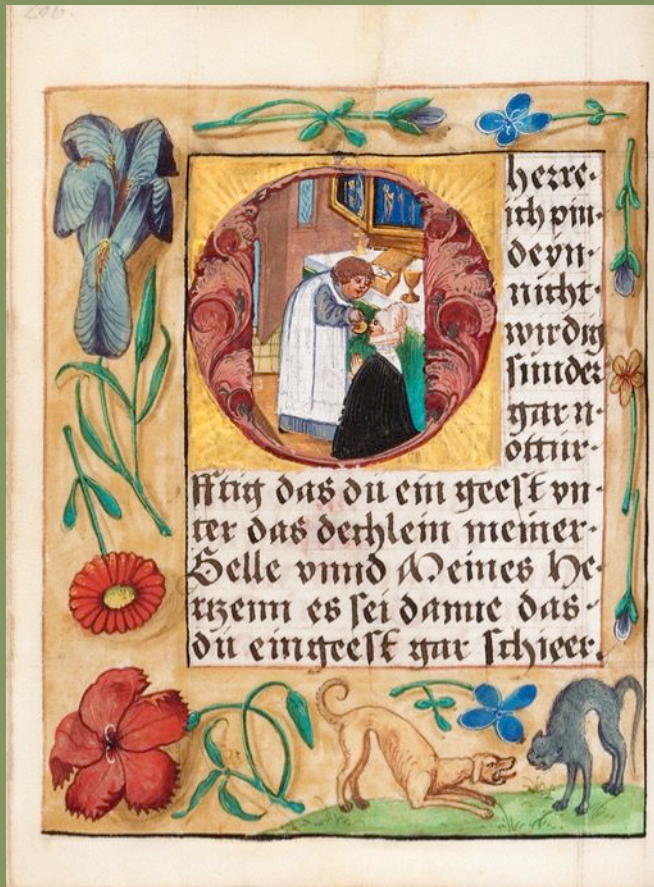 O
herre·
ich pin·
deyn·
nicht·
wirdig
sunder
gar n·
ottur·
fftig das du ein geest vn·
ter das dechlein meiner·
Selle vnnd Meines He·
rtzenn es sei danne das·
dü eingeest gar schieer.